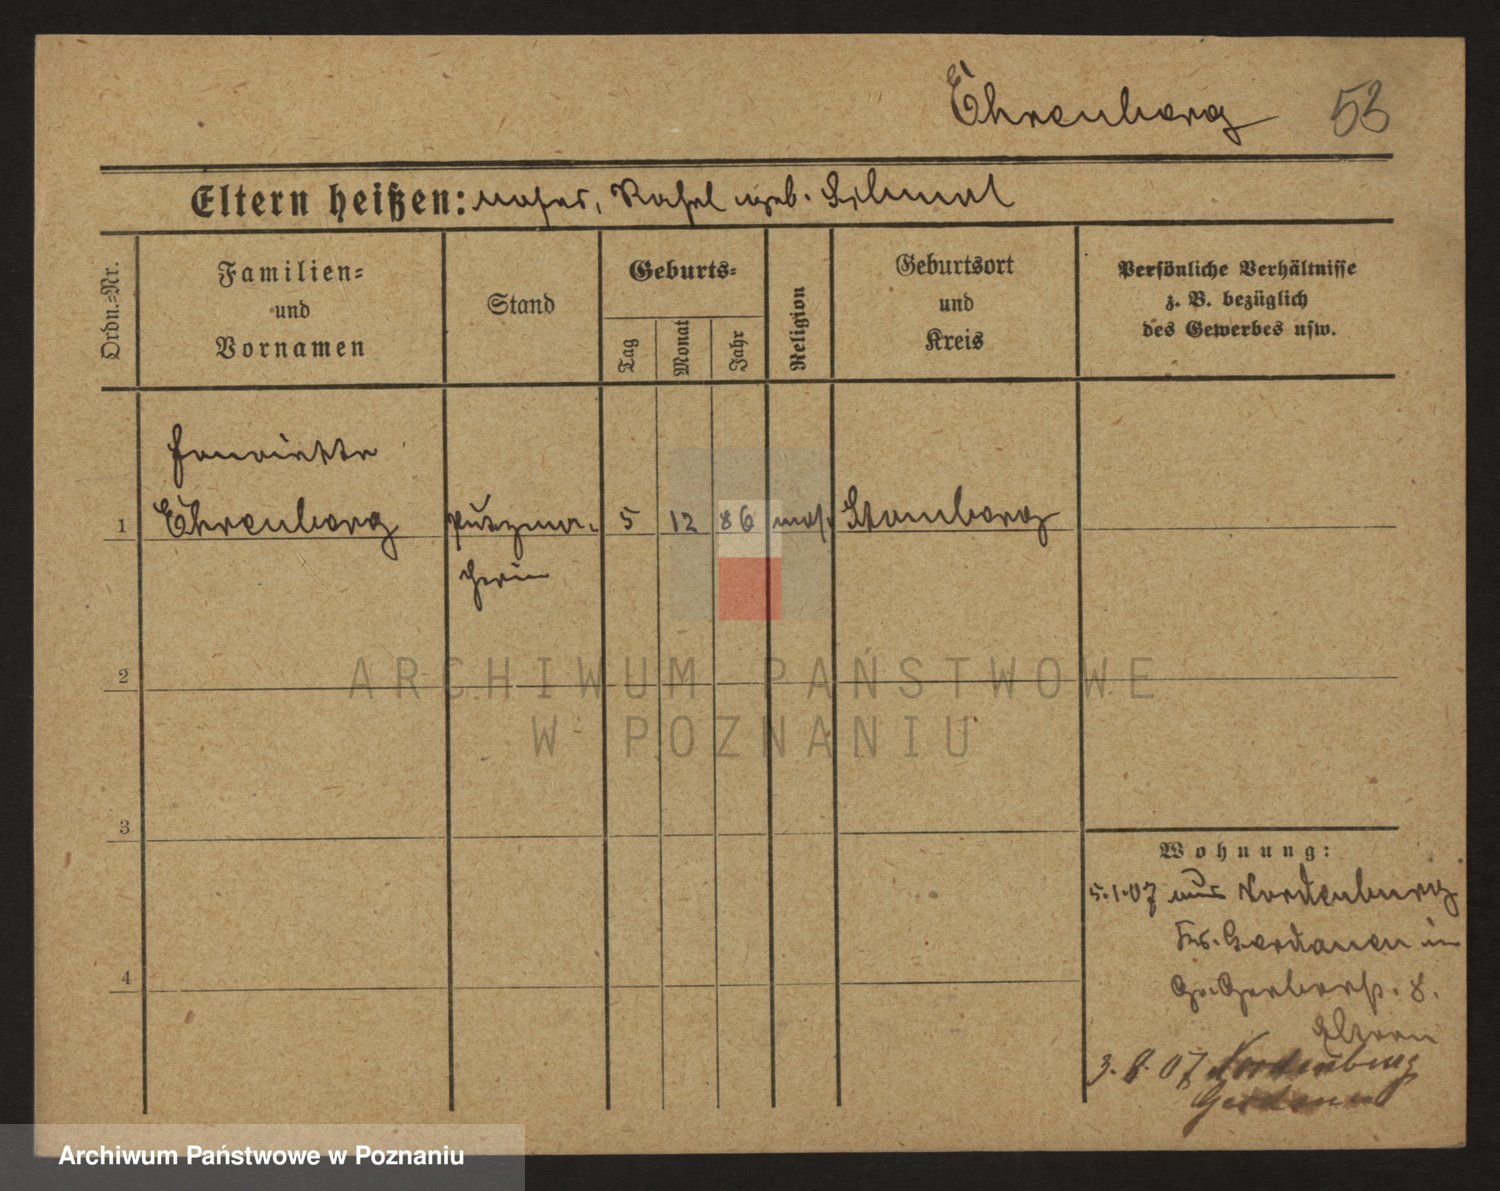 Ehrenberg 53
Eltern heißen: Moses, Rahel geb.
Ordn.=Nr.
Familien=
und
Vornamen
Stand
Geburts=
Tag
Monat
Jahr
Religion
Geburtsort
und
Kreis
Persönliche Verhältnisse
z. B. bezüglich
des Gewerbes usw.
Henriette
1 Ehrenberg Putzma- 5 12 86 mos. Stomberg
cherin
2
3
4
Wohnung:
5.1.07 aus Nordenburg
Krs. Gerdauen in
Gr. Gerberstr. 8.
Eltern
3. 8. 07 Nordenburg
Gerdauen
ARCHIWUM PAŃSTWOWE
W POZNANIU
Archiwum Państwowe w Poznaniu